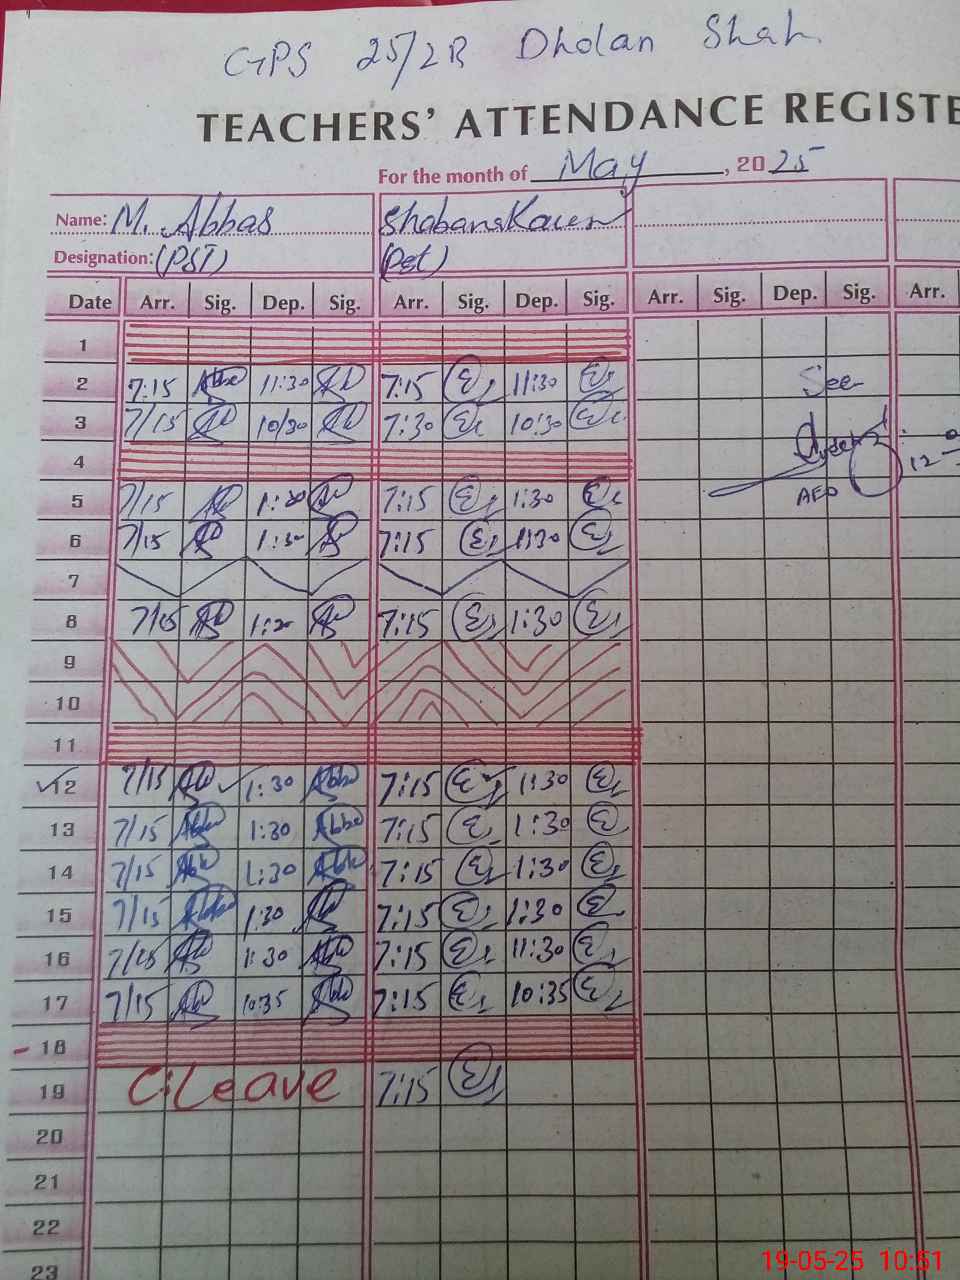 GPS 25/2R Dholan Shah
TEACHERS' ATTENDANCE REGISTE
For the month of May, 2025
Name: M. Abbas Shabana Kausar
Designation: (PST) (Pst)
Date Arr. Sig. Dep. Sig. Arr. Sig. Dep. Sig. Arr. Sig. Dep. Sig. Arr.
1
2 7:15 11:30 7:15 11:30 See
3 7/15 10/30 7:30 10:30
4 12
5 7/15 1:30 7:15 1:30 AEO
6 7/15 1:30 7:15 1:30
7
8 7/15 1:30 7:15 1:30
9
10
11
12 7/15 1:30 7:15 1:30
13 7/15 Abba 1:30 Abba 7:15 1:30
14 7/15 1:30 7:15 1:30
15 7/15 1:30 7:15 1:30
16 7/15 1:30 7:15 11:30
17 7/15 10:35 7:15 10:35
18
19 C:Leave 7:15
20
21
22
23
19-05-25 10:51